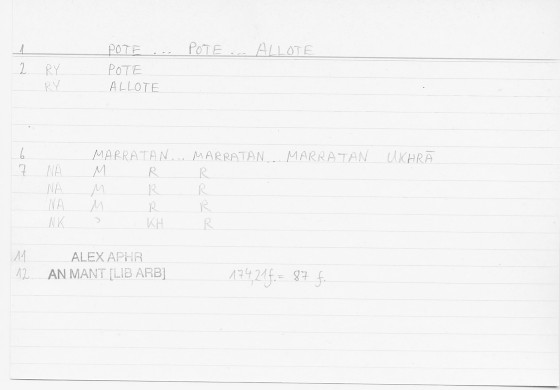 1 POTE ... POTE ... ALLOTE
2 RY POTE
RY ALLOTE
6 MARRATAN... MARRATAN... MARRATAN UKHRĀ
7 NA M R R
NA M R R
NA M R R
NK ? KH R
11 ALEX APHR
12 AN MANT [LIB ARB] 174,21f. = 87 f.